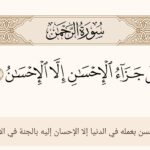 سُورَةُ الرَّحْمَٰن
جَزَآءُ ٱلْإِحْسَٰنِ إِلَّا ٱلْإِحْسَٰنُ
بعمله في الدنيا إلا الإحسان إليه بالجنة في